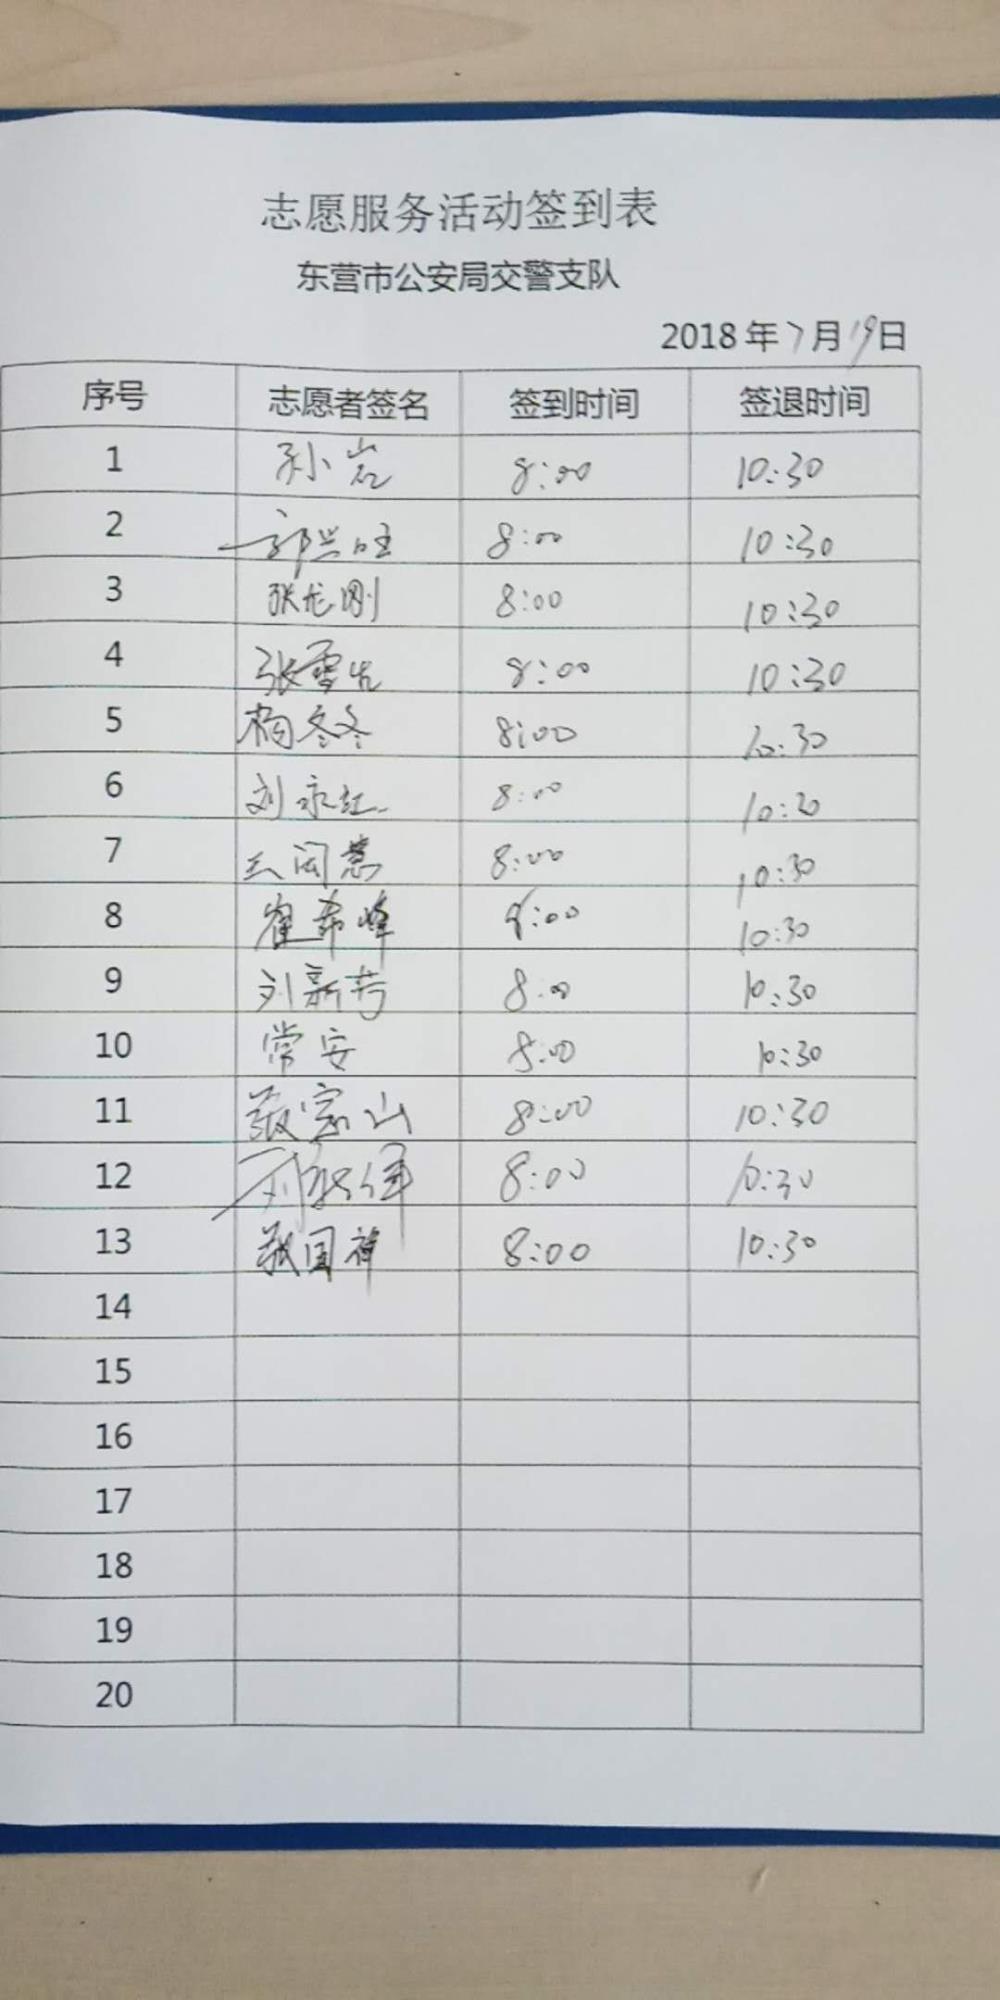 志愿服务活动签到表
东营市公安局交警支队
2018年7月19日
序号 志愿者签名 签到时间 签退时间
1 孙岩 8:00 10:30
2 郭兴旺 8:00 10:30
3 张龙刚 8:00 10:30
4 张雪 8:00 10:30
5 杨冬冬 8:00 10:30
6 刘永红 8:00 10:30
7 闫慧 8:00 10:30
8 崔希峰 8:00 10:30
9 刘新芳 8:00 10:30
10 常安 8:00 10:30
11 张宗山 8:00 10:30
12 刘 8:00 10:30
13 张国祥 8:00 10:30
14
15
16
17
18
19
20